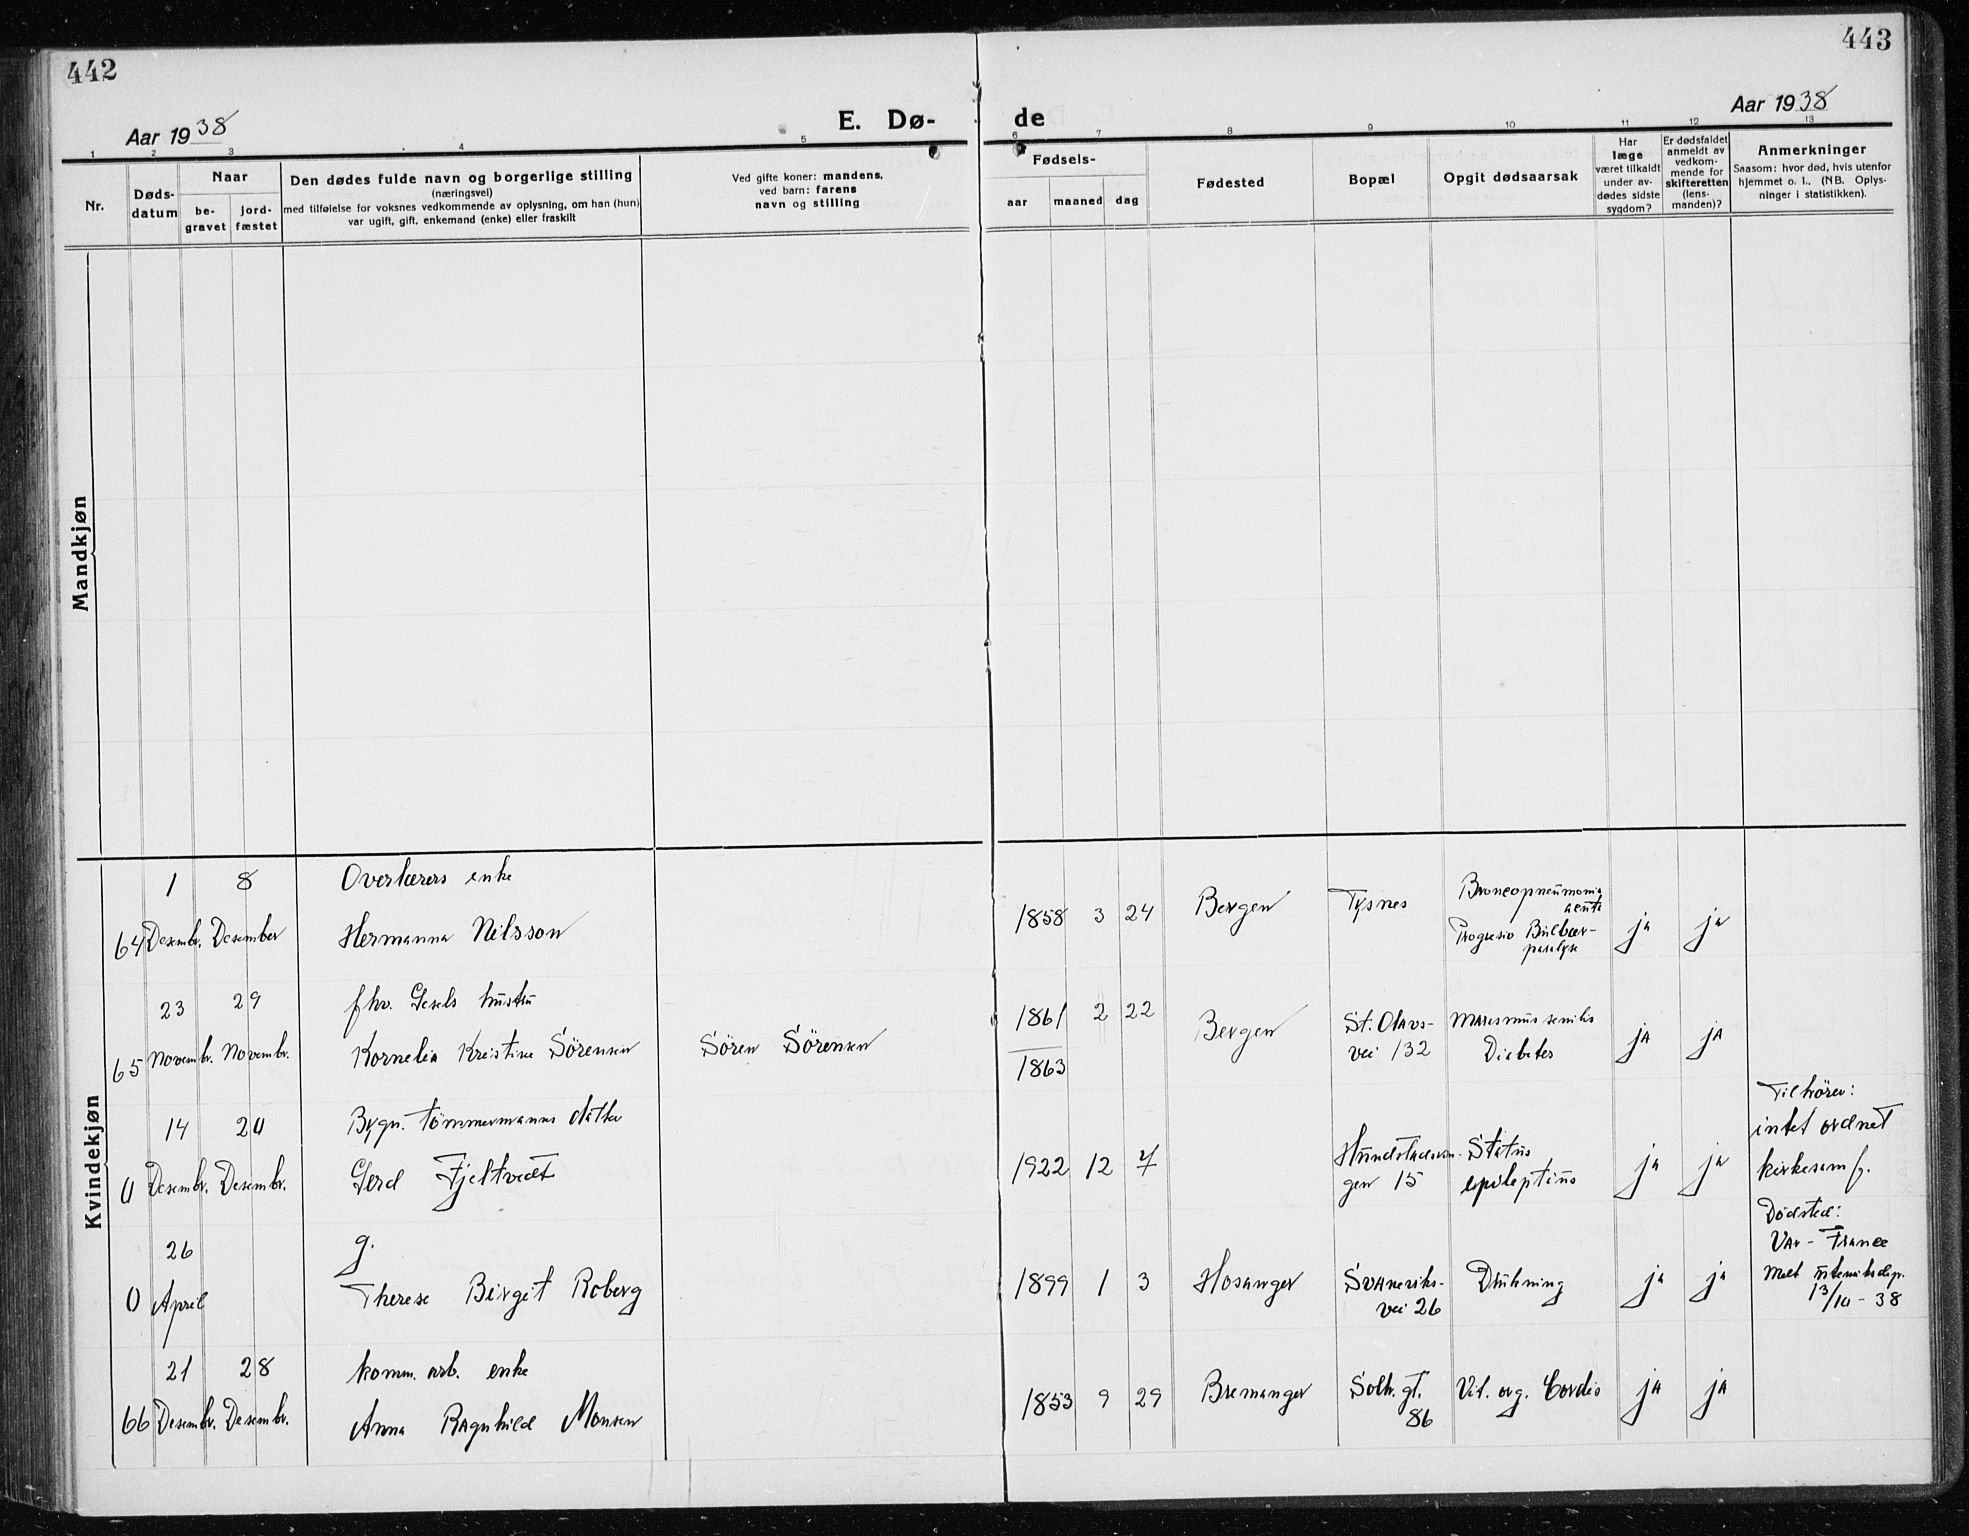 442
443
Aar 1938
E. Dø-
de
Aar 1938
1 2 3 4 5 6 7 8 9 10 11 12 13
Nr.
Døds-
datum
Naar
be-
gravet
jord-
fæstet
Den dødes fulde navn og borgerlige stilling
(næringsvei)
med tilføielse for voksnes vedkommende av oplysning, om han (hun)
var ugift, gift, enkemand (enke) eller fraskilt
Ved gifte koner: mandens,
ved barn: farens
navn og stilling
Fødsels-
aar maaned dag
Fødested
Bopæl
Opgit dødsaarsak
Har
læge
været tilkaldt
under av-
dødes sidste
sygdom?
Er dødsfaldet
anmeldt av
vedkom-
mende for
skifteretten
(lens-
manden)?
Anmerkninger
Saasom: hvor død, hvis utenfor
hjemmet o. l., (NB. Oplys-
ninger i statistikken).
Mandkjøn
Kvindekjøn
1 8 Overlærers enke
64 Desembr. Desember Hermanna Nilsson
1858 3 24 Bergen Tysnes
Broncopneumonia
acuta
Progresiv Bulbær-
paralyse
ja ja
23 29
65 Novembr. Novembr. Kornelia Kristine Sörensen Sören Sörensen
1861 2 22
1863
Bergen
St. Olavs-
vei 132
Marasmus senilis
Diabetes
ja ja
14 20 Bygn. tömmermanns datter
0 Desembr. Desembr. Gerd Fjeltvedt
1922 12 7
gen 15
Status
epileptius
ja ja
Tilhörer:
intet ordnet
kirkesamf.
26 g.
0 April Therese Birgit Roberg
1899 1 3 Hosanger
Svaneviks-
vei 26
Drukning
ja ja
Dødsted:
Var - France
13/10 - 38
21 28 komm. arb. enke
66 Desembr. Desembr. Anna Ragnhild Monsen
1853 9 29 Bremanger
Solh. gt.
86
Vit. org. Cordis
ja ja